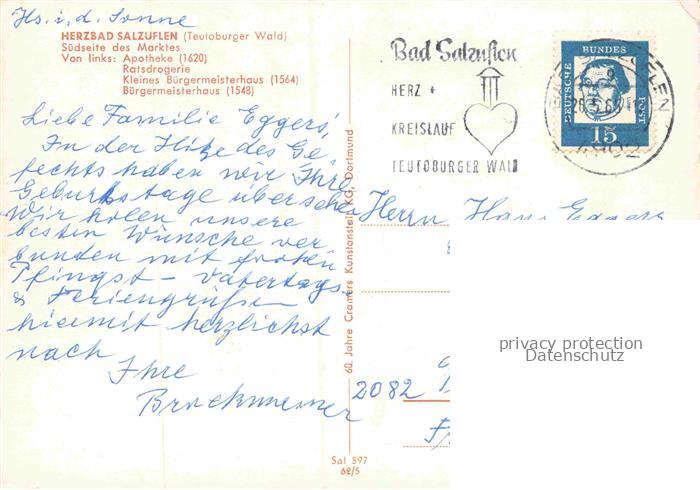 Hs. i. d. Sonne
HERZBAD SALZUFLEN (Teutoburger Wald)
Südseite des Marktes
Von links: Apotheke (1620)
Ratsdrogerie
Kleines Bürgermeisterhaus (1564)
Bürgermeisterhaus (1548)
Liebe Familie Eggers,
In der Hitze des Ge-
fechts haben wir Ihre
Geburtstage übersehen
Wir holen unsere
besten Wünsche ver
bunden mit frohen
Pfingst – Vatertags-
& Feriengrüßen
hiermit herzlichst
nach
Ihre
60 Jahre Cramers Kunstanstalt KG, Dortmund
Sal 597
62/5
Bad Salzuflen
HERZ +
KREISLAUF
TEUTOBURGER WALD
DEUTSCHE BUNDES POST
15
Herrn Hans Eggers
2082
privacy protection
Datenschutz